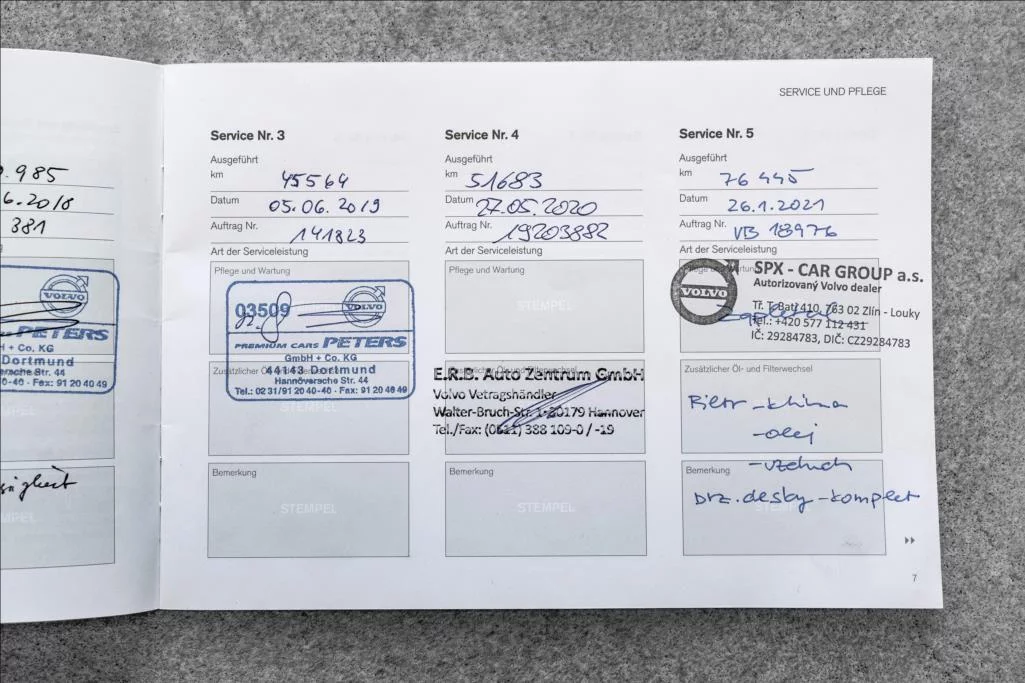 .985
6.2018
381
VOLVO
PETERS
H + Co. KG
Dortmund
ersche Str. 44
0-40 · Fax: 91 20 40 49
SERVICE UND PFLEGE
Service Nr. 3
Ausgeführt
km 45564
Datum 05.06.2019
Auftrag Nr. 141823
Art der Serviceleistung
Pflege und Wartung
03509
VOLVO
PREMIUM CARS PETERS
GmbH + Co. KG
44143 Dortmund
Hannöversche Str. 44
Tel.: 02 31/91 20 40-40 · Fax: 91 20 40 49
STEMPEL
Bemerkung
STEMPEL
Service Nr. 4
Ausgeführt
km 51683
Datum 27.05.2020
Auftrag Nr. 19203882
Art der Serviceleistung
Pflege und Wartung
STEMPEL
Zusätzlicher Öl- und Filterwechsel
E.R.B. Auto Zentrum GmbH
Volvo Vetragshändler
Walter-Bruch-Str. 1-30179 Hannover
Tel./Fax: (0511) 388 109-0 / -19
Bemerkung
STEMPEL
Service Nr. 5
Ausgeführt
km 76 445
Datum 26.1.2021
Auftrag Nr. VB 18976
Art der Serviceleistung
Pflege und Wartung
VOLVO
SPX - CAR GROUP a.s.
Autorizovaný Volvo dealer
Tř. T. Bati 410, 763 02 Zlín - Louky
Tel.: +420 577 112 431
IČ: 29284783, DIČ: CZ29284783
Zusätzlicher Öl- und Filterwechsel
Filtr - klima
- olej
- vzduch
Bemerkung
brz. desky - komplet
STEMPEL
7